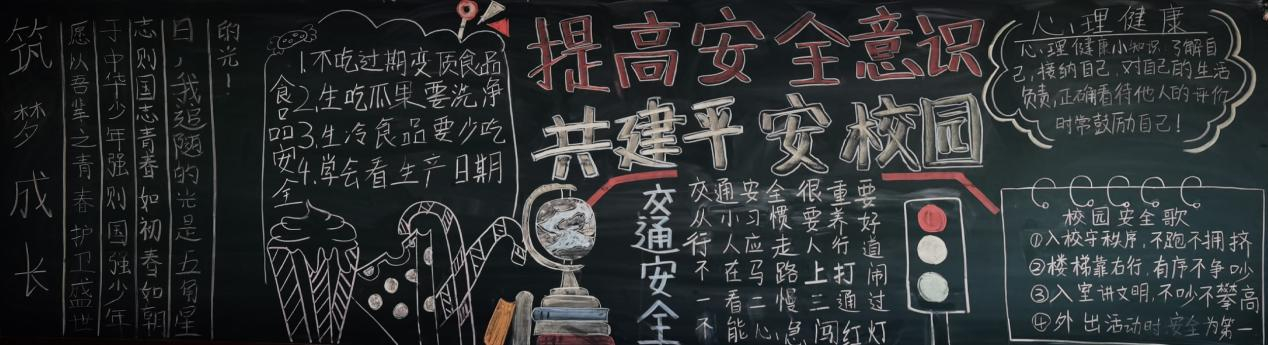 筑梦成长
愿以吾辈之青春护卫盛世
于中华少年强则国强少年
志则国志青春如初春如朝
日,我追随的光是五角星
的光!
食品安全
1.不吃过期变质食品
2.生吃瓜果要洗净
3.生冷食品要少吃
4.学会看生产日期
提高安全意识
共建平安校园
交通安全
交通安全很重要
从小习惯要养好
行人应走人行道
不在马路上打闹
一看二慢三通过
不能心急闯红灯
心理健康
心理健康小知识:了解自
己,接纳自己,对自己的生活
负责,正确看待他人的评价
时常鼓励自己!
校园安全歌
①入校守秩序,不跑不拥挤
②楼梯靠右行,有序不争吵
③入室讲文明,不吵不攀高
④外出活动时安全为第一